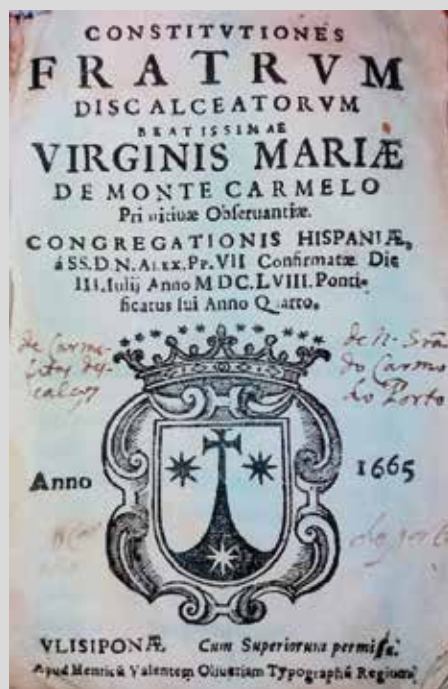 CONSTITVTIONES
FRATRVM
DISCALCEATORVM
BEATISSIMAE
VIRGINIS MARIÆ
DE MONTE CARMELO
Primitiuæ Obseruantiæ.
CONGREGATIONIS HISPANIÆ,
á SS.D.N.ALEX.PP.VII Confirmatæ Die
III.Iulij Anno M DC.LVIII. Ponti-
ficatus sui Anno Quarto.
de Carme-
litas des-
calços
de N. Srã
do Carmo
do Porto
Anno 1665
do porto
VLISIPONÆ Cum Superiorum permissu.
Apud Henricũ Valentem Oliueriam Typographũ Regium